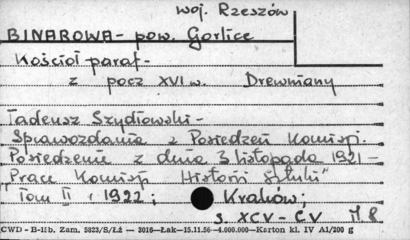 woj. Rzeszów
BINAROWA - pow. Gorlice
Kościół paraf. -
z pocz XVI w. Drewniany
Tadeusz Szydłowski -
Sprawozdania z Posiedzeń Komisji.
Posiedzenie z dnia 3 listopada 1921 -
"Prace Komisji Historii Sztuki"
Tom II, 1922; Kraków;
s. XCV - CV M.R
CWD - B-11b. Zam. 5823/S/Łź — 3016—Łak—15.11.56—4.000.000—Karton kl. IV A1/200 g